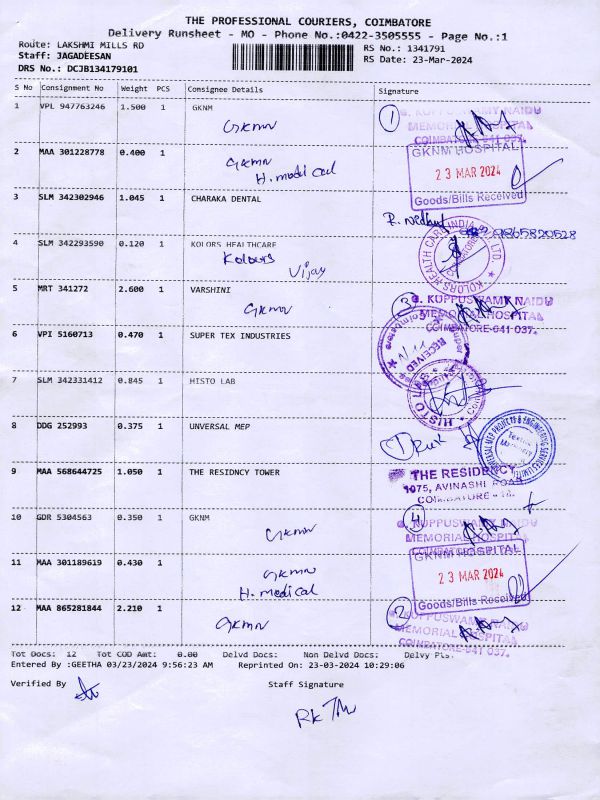 THE PROFESSIONAL COURIERS, COIMBATORE
Delivery Runsheet - MO - Phone No.:0422-3505555 - Page No.:1
Route: LAKSHMI MILLS RD
RS No.: 1341791
Staff: JAGADEESAN
RS Date: 23-Mar-2024
DRS No.: DCJB134179101
S No Consignment No Weight PCS Consignee Details Signature
1 VPL 947763246 1.500 1 GKNM
GKMN
1
G. KUPPUSWAMY NAIDU
MEMORIAL HOSPITAL
COIMBATORE-641 037.
2 MAA 301228778 0.400 1
GKMN
H. medical
GKNM HOSPITAL
23 MAR 2024
Goods/Bills Received
3 SLM 342302946 1.045 1 CHARAKA DENTAL
9865820528
4 SLM 342293590 0.120 1 KOLORS HEALTHCARE
Kolours
Vijay
KOLORS HEALTH CARE INDIA PVT. LTD.
COIMBATORE
5 MRT 341272 2.600 1 VARSHINI
GKMN
3
G. KUPPUSWAMY NAIDU
MEMORIAL HOSPITAL
COIMBATORE-641 037.
6 VPI 5160713 0.470 1 SUPER TEX INDUSTRIES
RECEIVED
7 SLM 342331412 0.845 1 HISTO LAB
HISTO LAB
8 DDG 252993 0.375 1 UNVERSAL MEP
1
UNIVERSAL MEP PROJECTS & ENGINEERING SERVICES LIMITED
9 MAA 568644725 1.050 1 THE RESIDNCY TOWER
THE RESIDENCY
1075, AVINASHI ROAD
COIMBATORE - 18.
10 GDR 5304563 0.350 1 GKNM
GKMN
4
G. KUPPUSWAMY NAIDU
MEMORIAL HOSPITAL
COIMBATORE
11 MAA 301189619 0.430 1
GKMN
H. medical
GKNM HOSPITAL
23 MAR 2024
Goods/Bills Received
12 MAA 865281844 2.210 1
GKMN
2
G. KUPPUSWAMY NAIDU
MEMORIAL HOSPITAL
COIMBATORE-641 037.
Tot Docs: 12 Tot COD Amt: 0.00 Delvd Docs: Non Delvd Docs: Delvy Pls:
Entered By :GEETHA 03/23/2024 9:56:23 AM Reprinted On: 23-03-2024 10:29:06
Verified By
Staff Signature